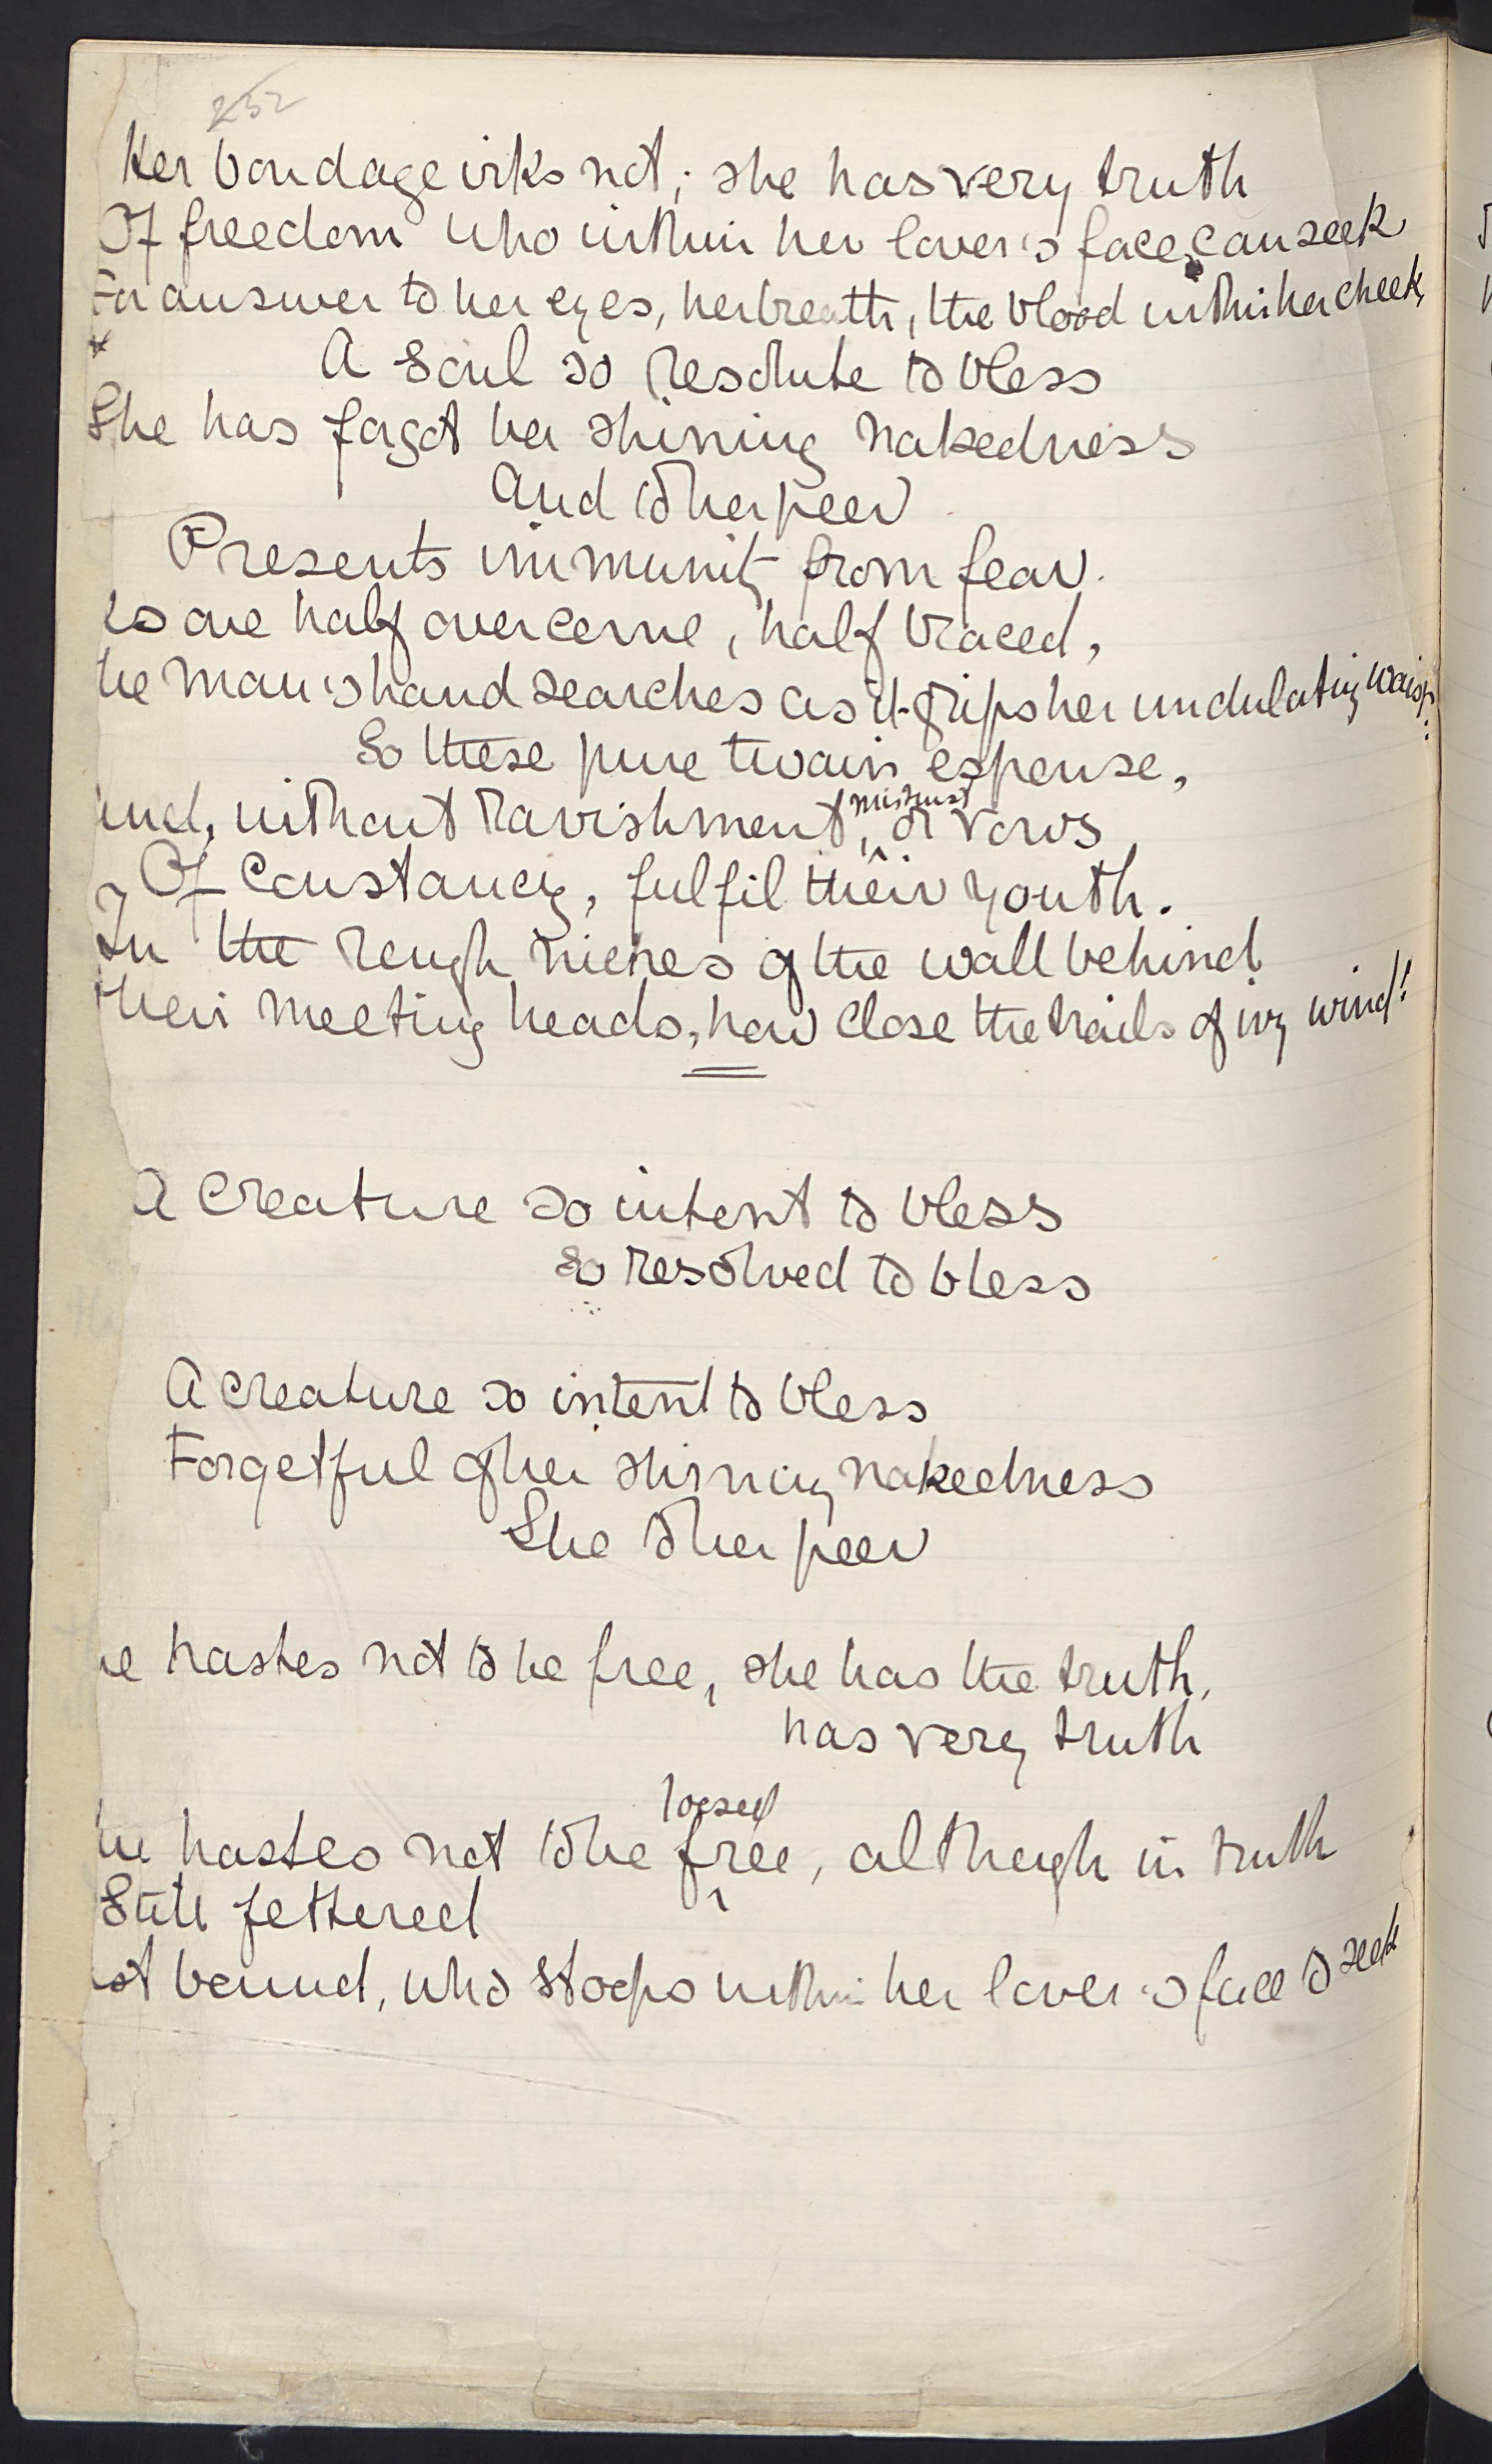 252
Her bondage irks not; she has very truth
Of freedom who within her lover's face can seek
For answer to her eyes, her breath, the blood within her cheek,
x
A soul so resolute to bless
She has forgot her shining nakedness
And to her peer
Presents immunity from fear.
As one half overcome, half braced,
he man's hand searches as it grips her undulating waist:
So these pure twain espouse,
and, without ravishment, mistrust or vows
Of constancy, fulfil their youth.
In the rough niches of the wall behind
their meeting heads, how close the trails of ivy wind!
A creature so intent to bless
so resolved to bless
A creature so intent to bless
Forgetful of her shining nakedness
She to her peer
he hastes not to be free, she has the truth,
has very truth
loosed
he hastes not to be free, although in truth
Still fettered
st bound, who stoops within her lover's face to seek